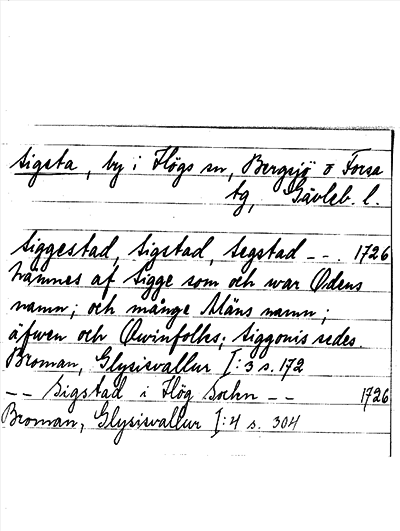 Sigsta, by i Högs sn, Bergsjö o Forsa
tg, Gävleb. l.
Siggestad, Sigstad, Segstad - - . 1726
nämnes af Sigge som och war Odens
namn; och många Mäns namn;
äfwen och Qwinfolks; Siggonis sedes.
Broman, Glysisvallur I:3 s. 172
- - Sigstad i Hög Sochn - - 1726
Broman, Glysisvallur I:4 s. 304